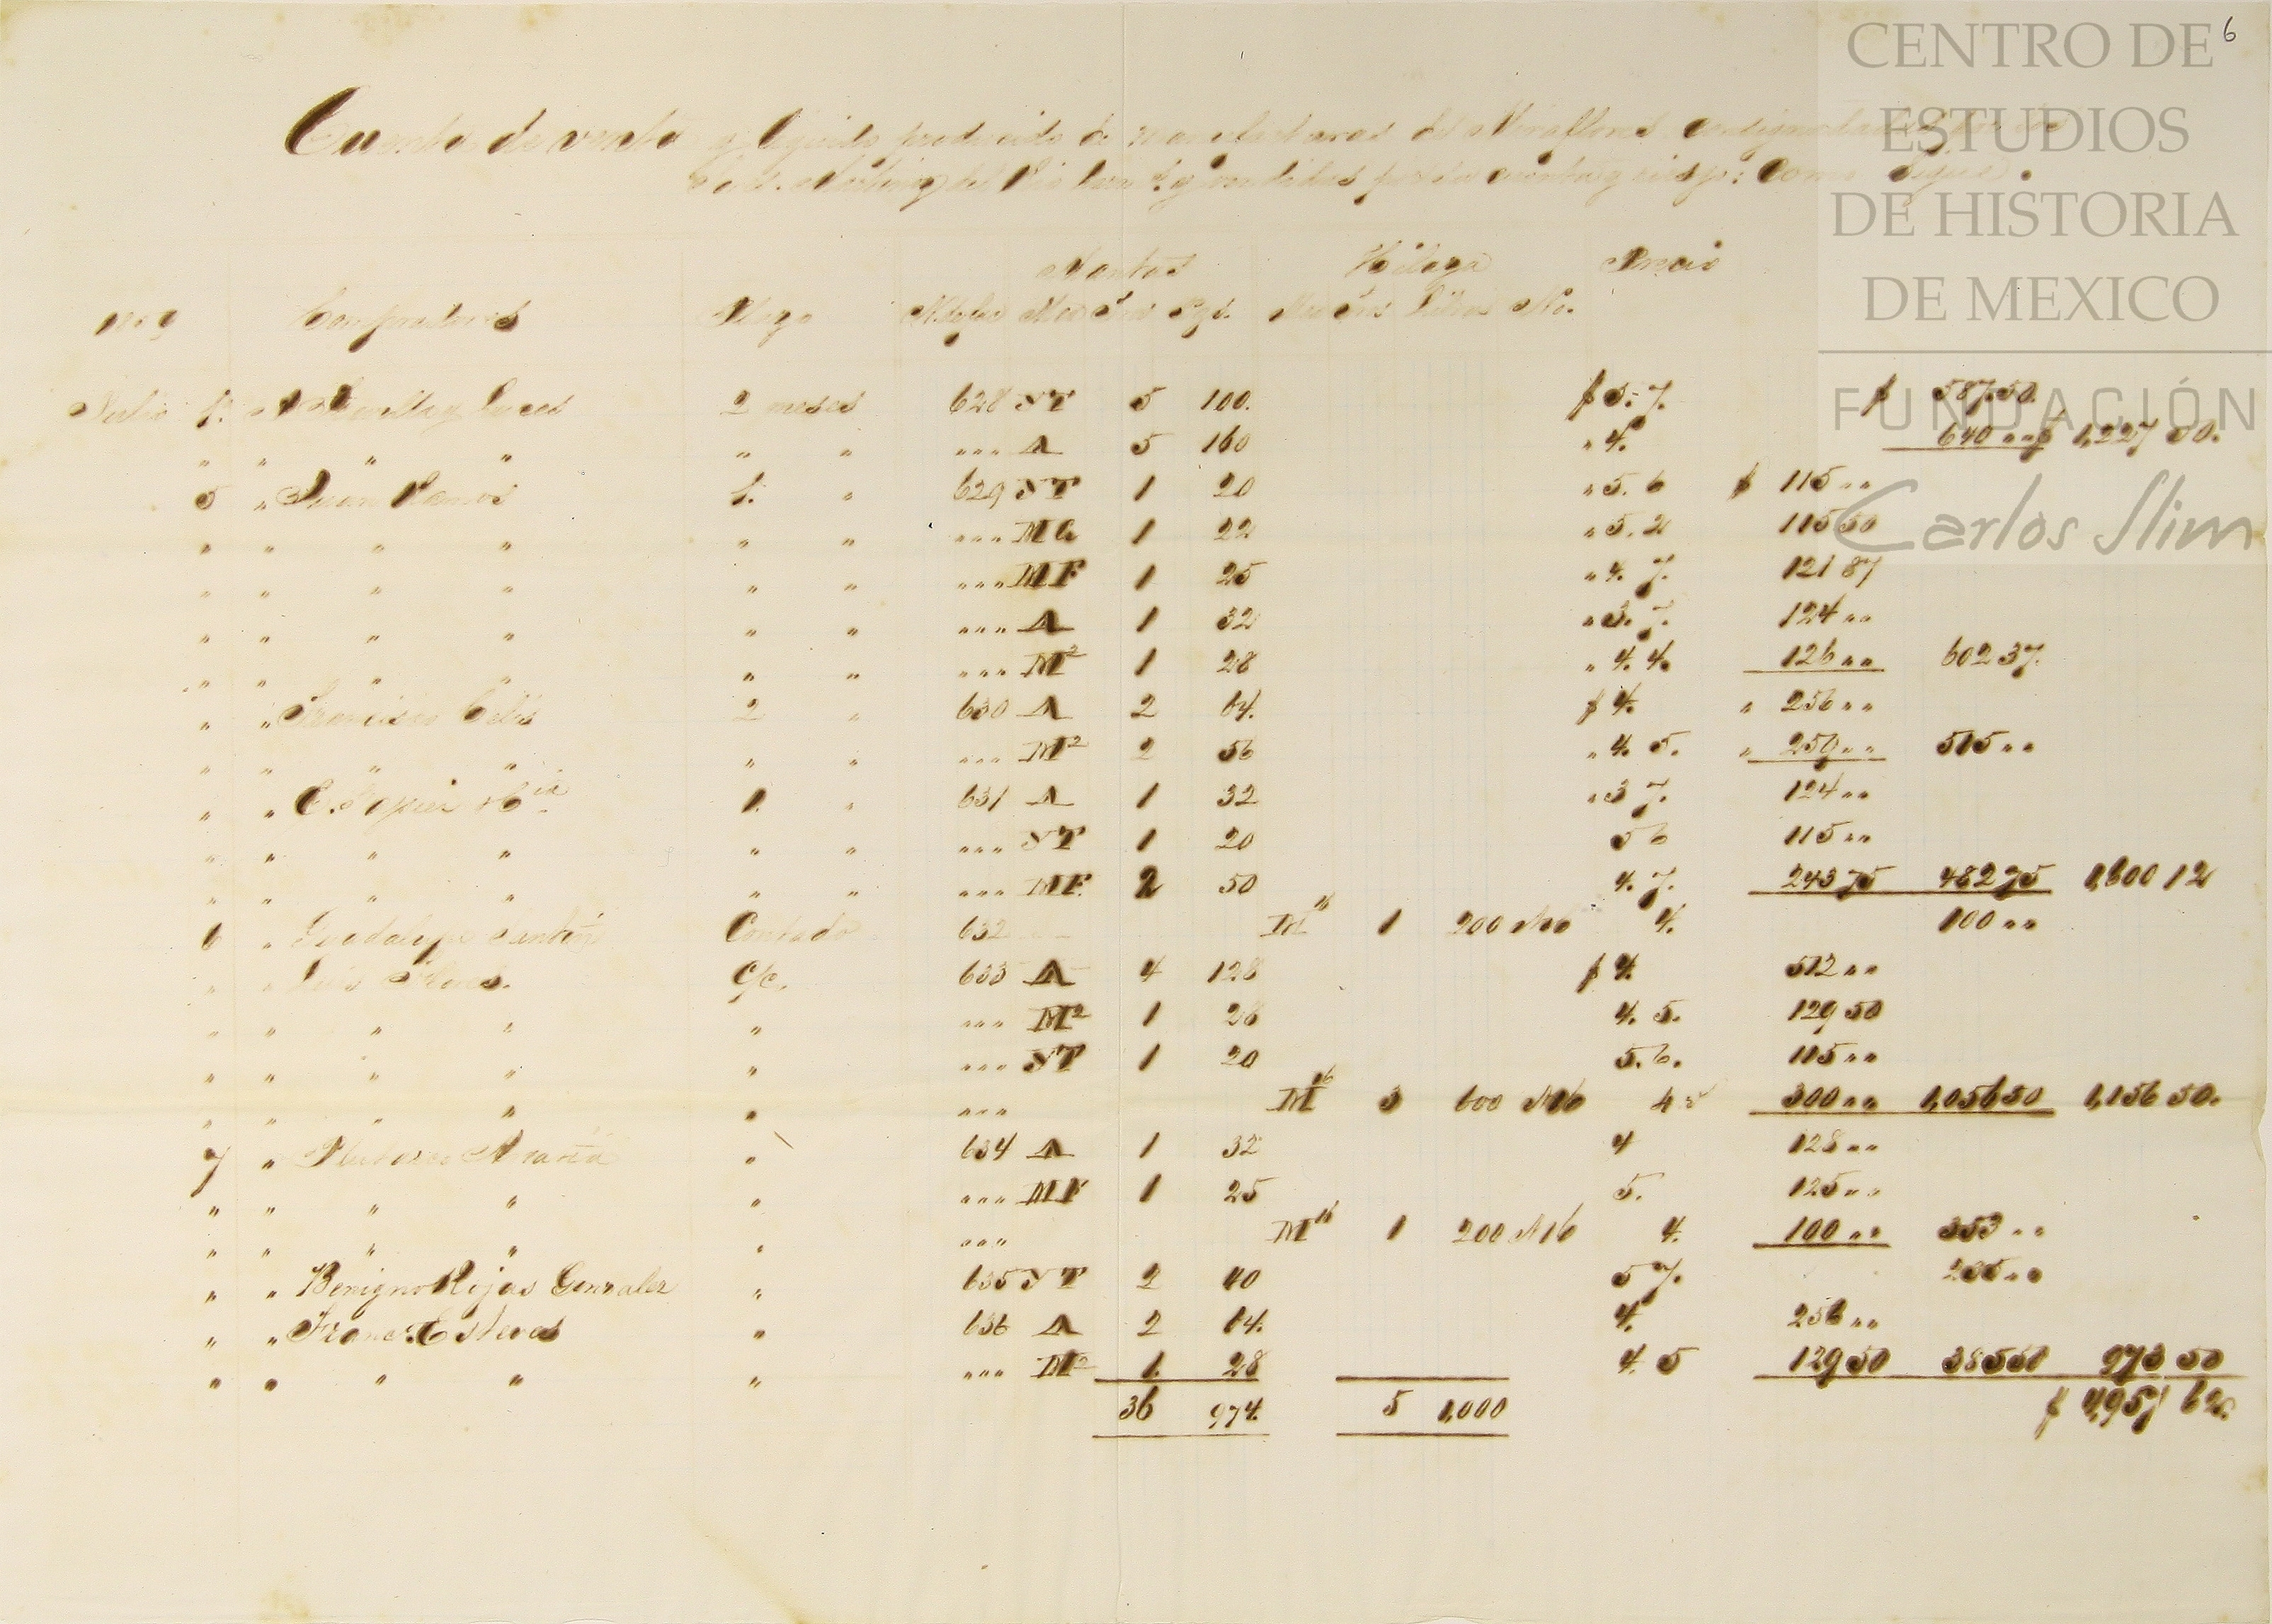 6
CENTRO DE
ESTUDIOS
DE HISTORIA
DE MEXICO
FUNDACIÓN
Carlos Slim
Cuenta de venta y liquido producido de manufacturas de Miraflores consignadas por los
Martinez del Rio y vendidas por su cuenta y riesgo: Como sigue.
Mantas Hilaza Precio
Compradores Plazo Mar Ter Pzs. Libras No.
Julio 1. 2 meses 628 ST 5 100. $ 5. 7. $ 587.50.
" " " " " " " " " A 5 160 " 4. 640 " " $ 1,227 50.
5 " Juan Ramos 1. " 629 ST 1 20 " 5. 6 $ 115 " "
" " " " " " " " " MG 1 22 " 5. 2 115 50
" " " " " " " " " MF 1 25 " 4. 7. 121 87
" " " " " " " " " A 1 32 " 3. 7. 124 " "
" " " " " " " " " M2 1 28 " 4. 4. 126 " " 602 37.
" " Francisco Celis 2 " 630 A 2 64. $ 4. " 256 " "
" " " " " " " " " M2 2 56 " 4. 5. " 259 " " 515 " "
" " 1. " 631 A 1 32 " 3 7. 124 " "
" " " " " " " " " ST 1 20 5 6 115 " "
" " " " " " " " " MF. 2 50 4. 7. 243 75 482 75 1,600 12
6 " Guadalupe Contado 632 M16 1 200 No 4. 100 " "
" " Luis Flores. C/c. 633 A 4 128 $ 4. 512 " "
" " " " " " " " M2 1 28 4. 5. 129 50
" " " " " " " " ST 1 20 5. 6. 115 " "
" " " " " " " " M16 3 600 N16 4 300 " " 1,056 50 1,156 50.
7 " " 634 A 1 32 4 128 " "
" " " " " " " " MF 1 25 5. 125 " "
" " " " " " " " M16 1 200 N16 4. 100 " " 353 " "
" " Benigno Rojas Gonzalez " 635 ST 2 40 5 7. 235 " "
" " Franco. Esteves " 636 A 2 64. 4. 256 " "
" " " " " " " " M2 1. 28 4. 5 129 50 385 50 973 50
36 974. 5 1,000 $ 4,957 62.